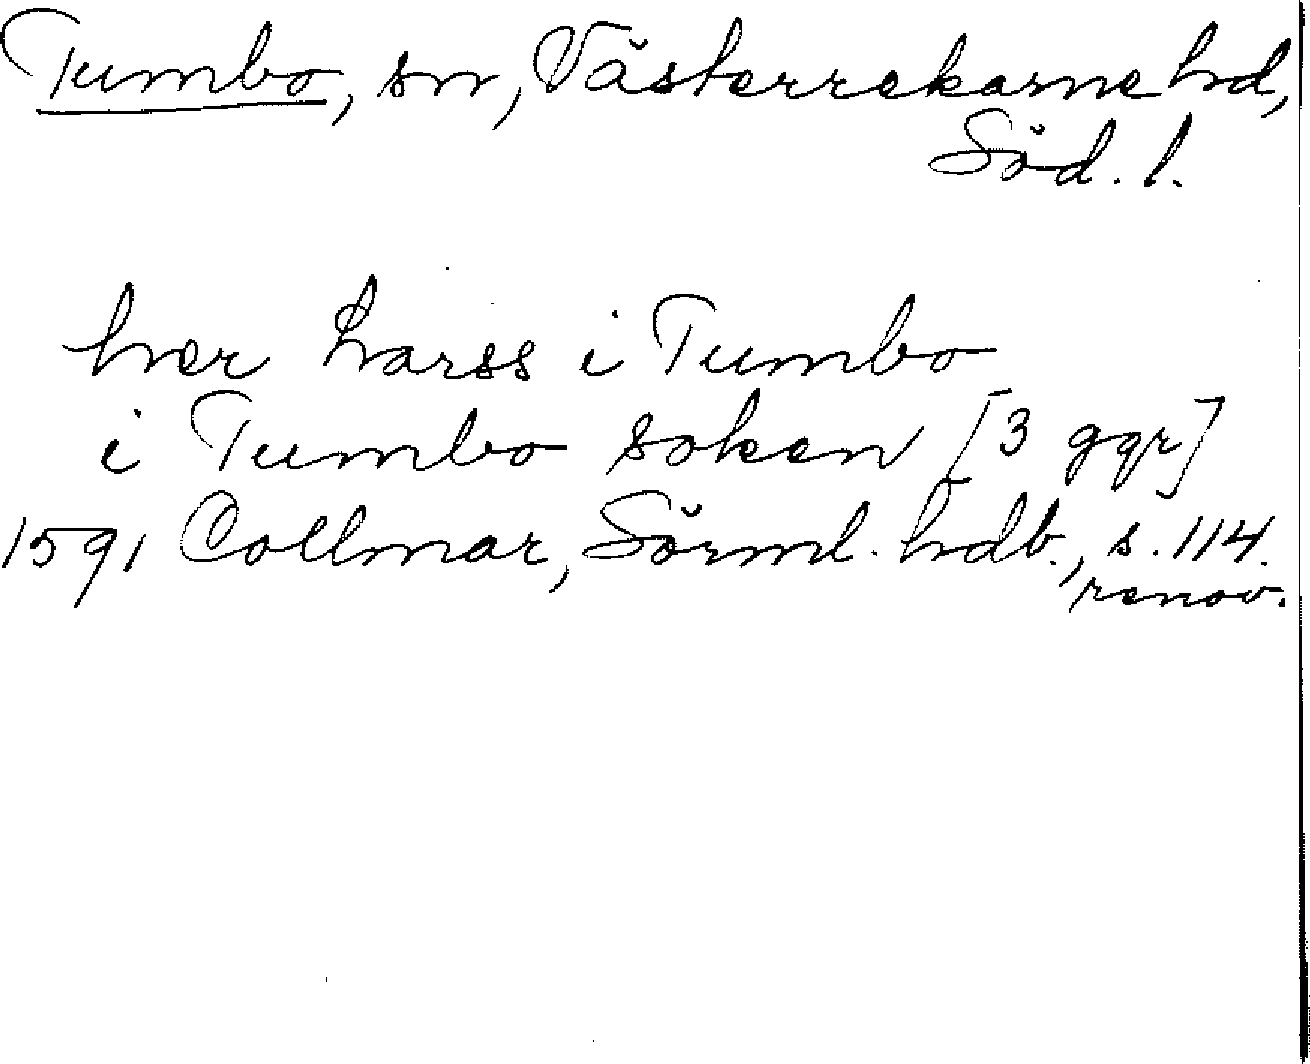 Tumbo, sn, Västerrekarne hd,
Söd. l.
her Larss i Tumbo
i Tumbo soken [3 ggr]
1591 Collmar, Sörml. hdb., s. 114.
renov.